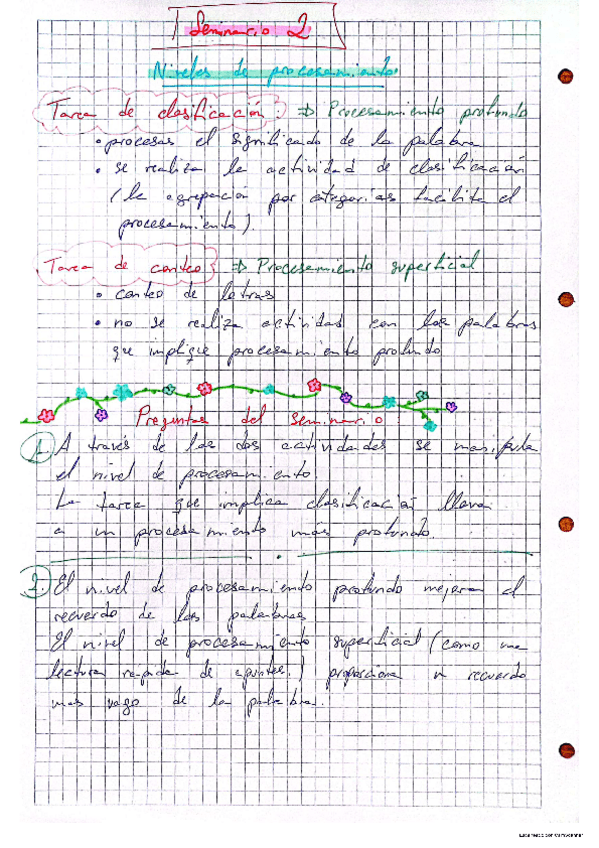 Seminario 2
Niveles de procesamiento
Tarea de clasificación: ⇒ Procesamiento profundo
• procesas el significado de la palabra
• se realiza la actividad de clasificación
(la agrupación por categorías facilita el
procesamiento).
Tarea de conteo: ⇒ Procesamiento superficial
• conteo de letras
• no se realiza actividad con las palabras
que implique procesamiento profundo
Preguntas del seminario
1. A través de las dos actividades se manipula
el nivel de procesamiento.
La tarea que implica clasificación lleva
a un procesamiento más profundo.
2. El nivel de procesamiento profundo mejora el
recuerdo de las palabras
El nivel de procesamiento superficial (como una
lectura rápida de apuntes) proporciona un recuerdo
más vago de la palabra.